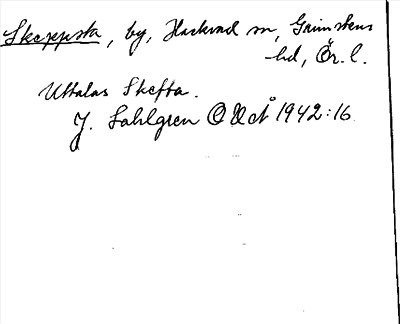 Skeppsta, by, Hackvad sn, Grimstens
hd, Ör. l.
Uttalas Skefta.
J. Sahlgren OUÅ 1942:16.